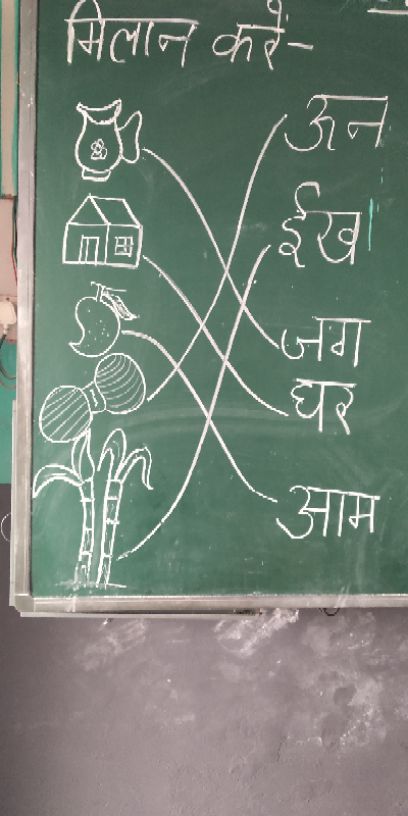 मिलान करें-
ऊन
ईख
जग
घर
आम